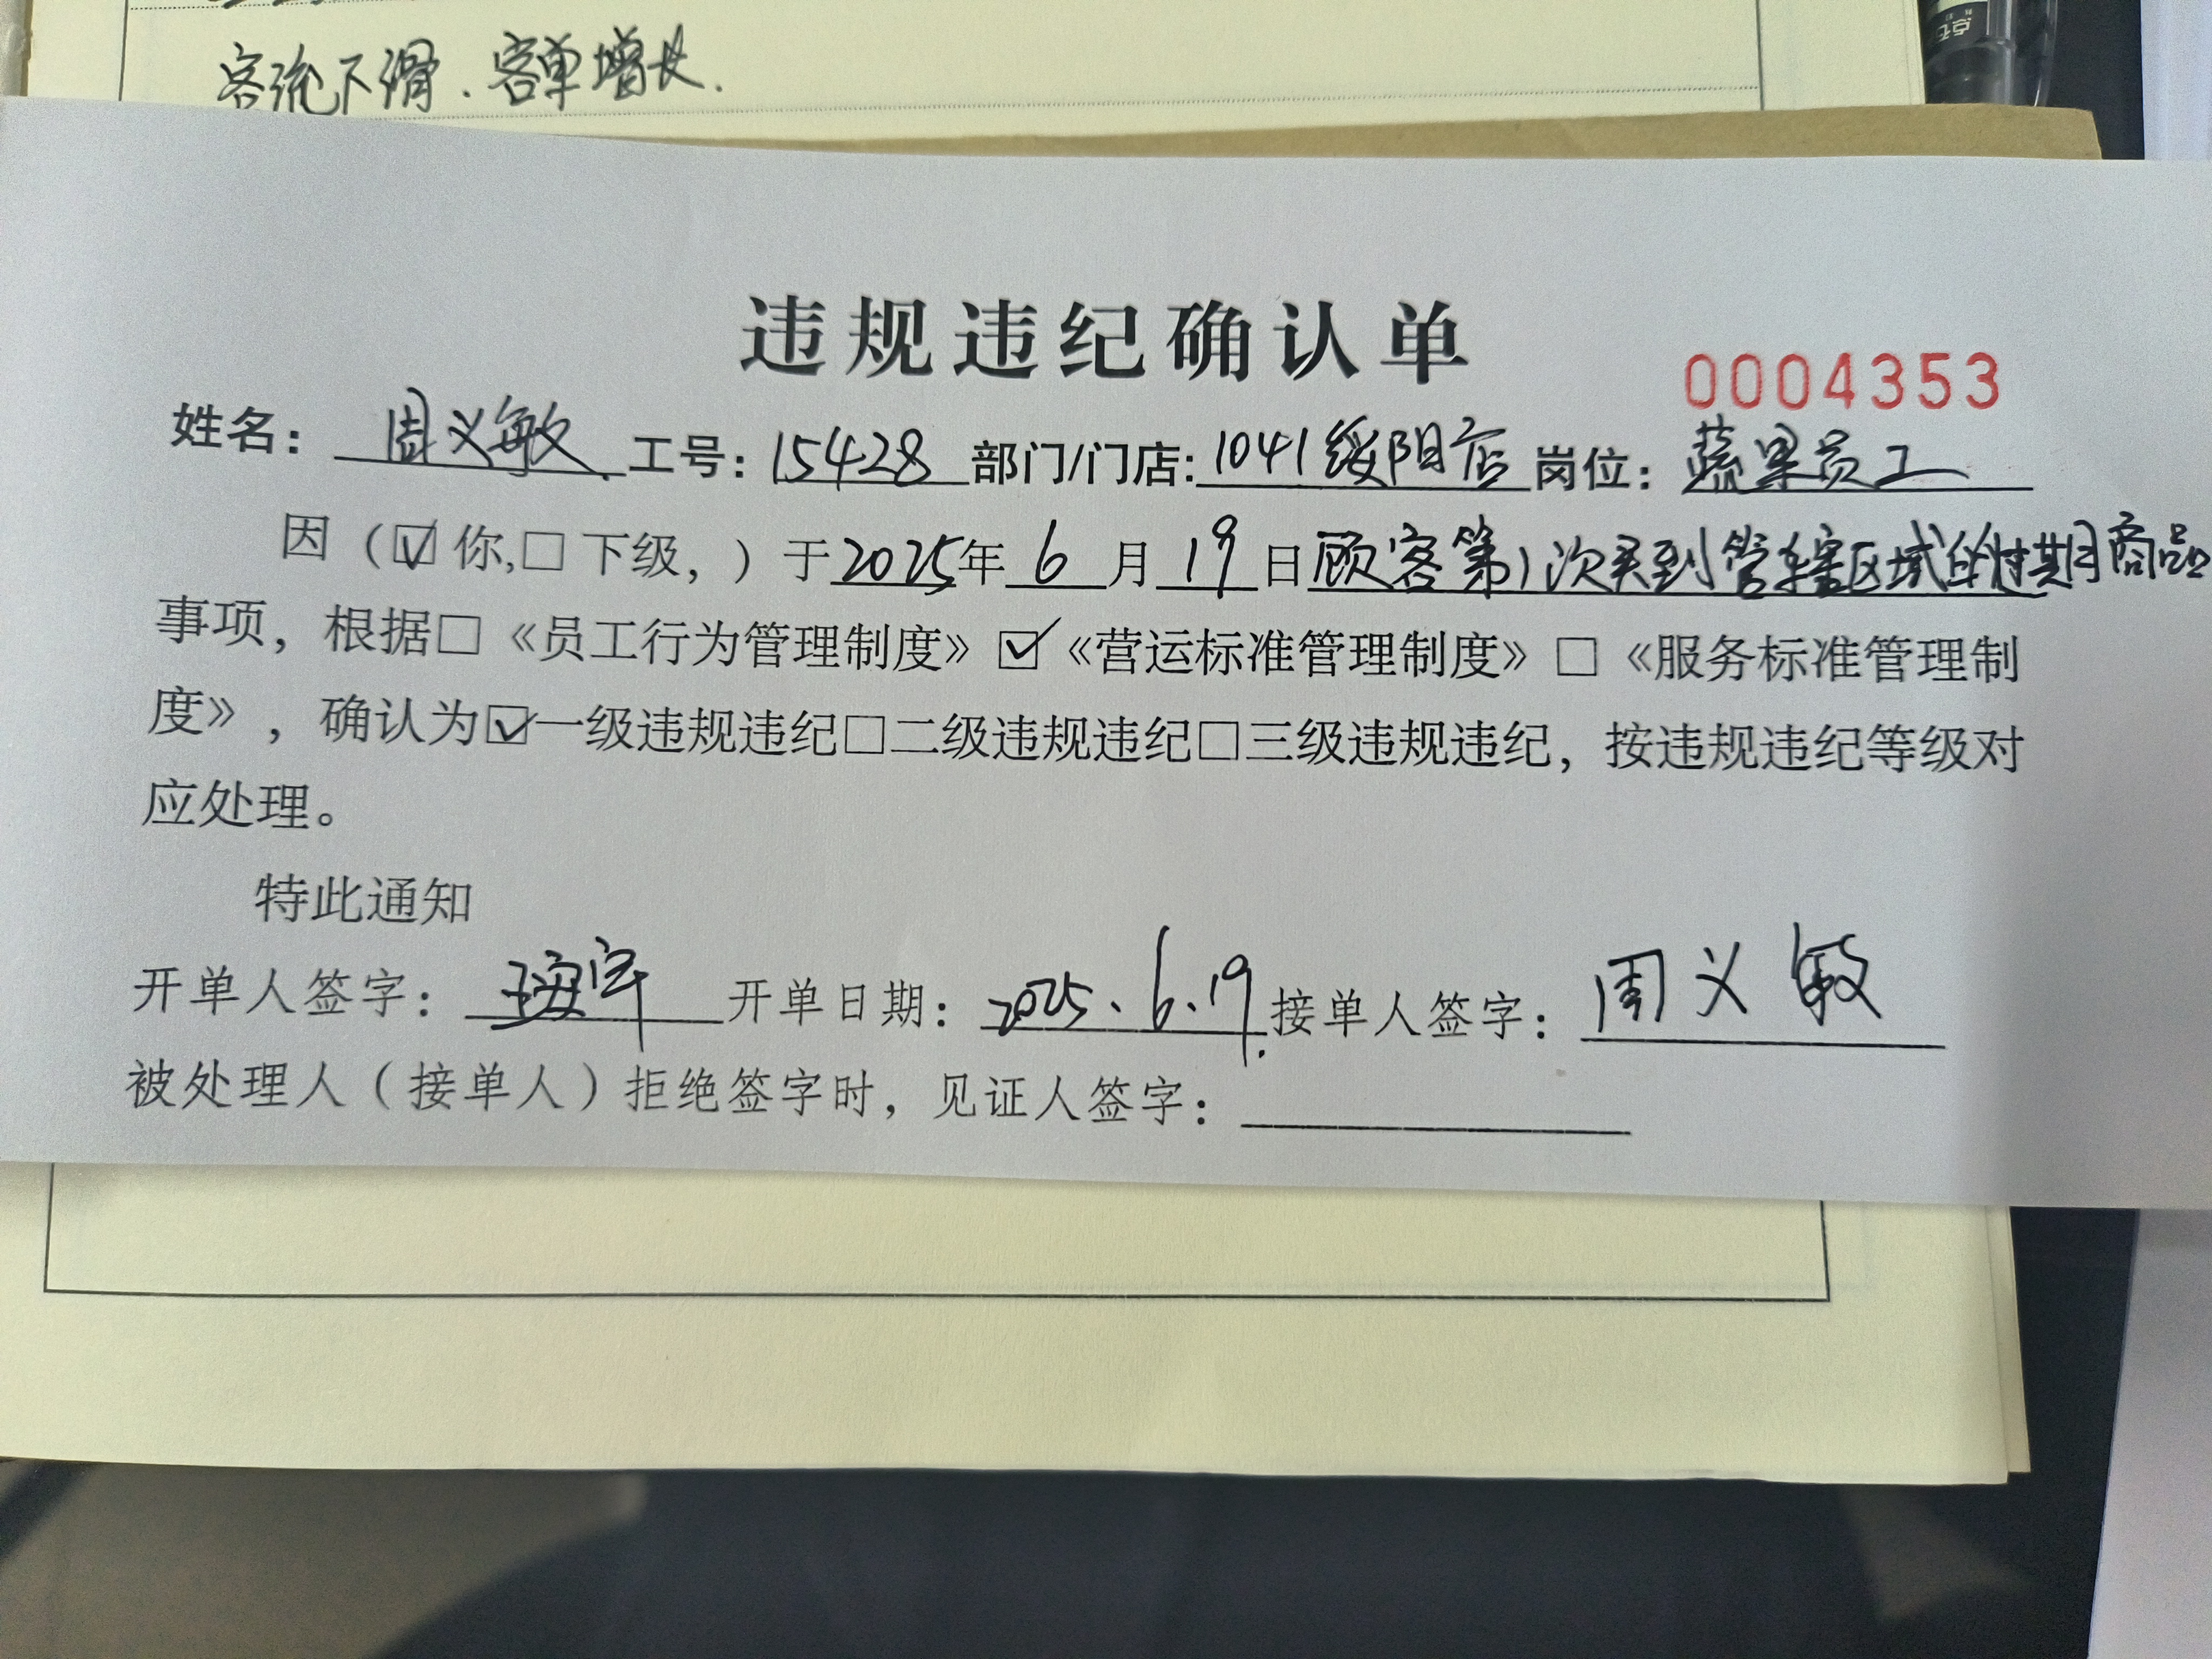 客流下滑.客单增长.
违规违纪确认单
0004353
姓名：周义敏 工号：15428 部门/门店：1041绥阳店 岗位：蔬果员工
因（☑你,□下级，）于2025年6月19日顾客第1次买到管辖区域的过期商品
事项，根据□《员工行为管理制度》☑《营运标准管理制度》□《服务标准管理制
度》，确认为☑一级违规违纪□二级违规违纪□三级违规违纪，按违规违纪等级对
应处理。
特此通知
开单人签字： 开单日期：2025.6.19. 接单人签字：周义敏
被处理人（接单人）拒绝签字时，见证人签字：